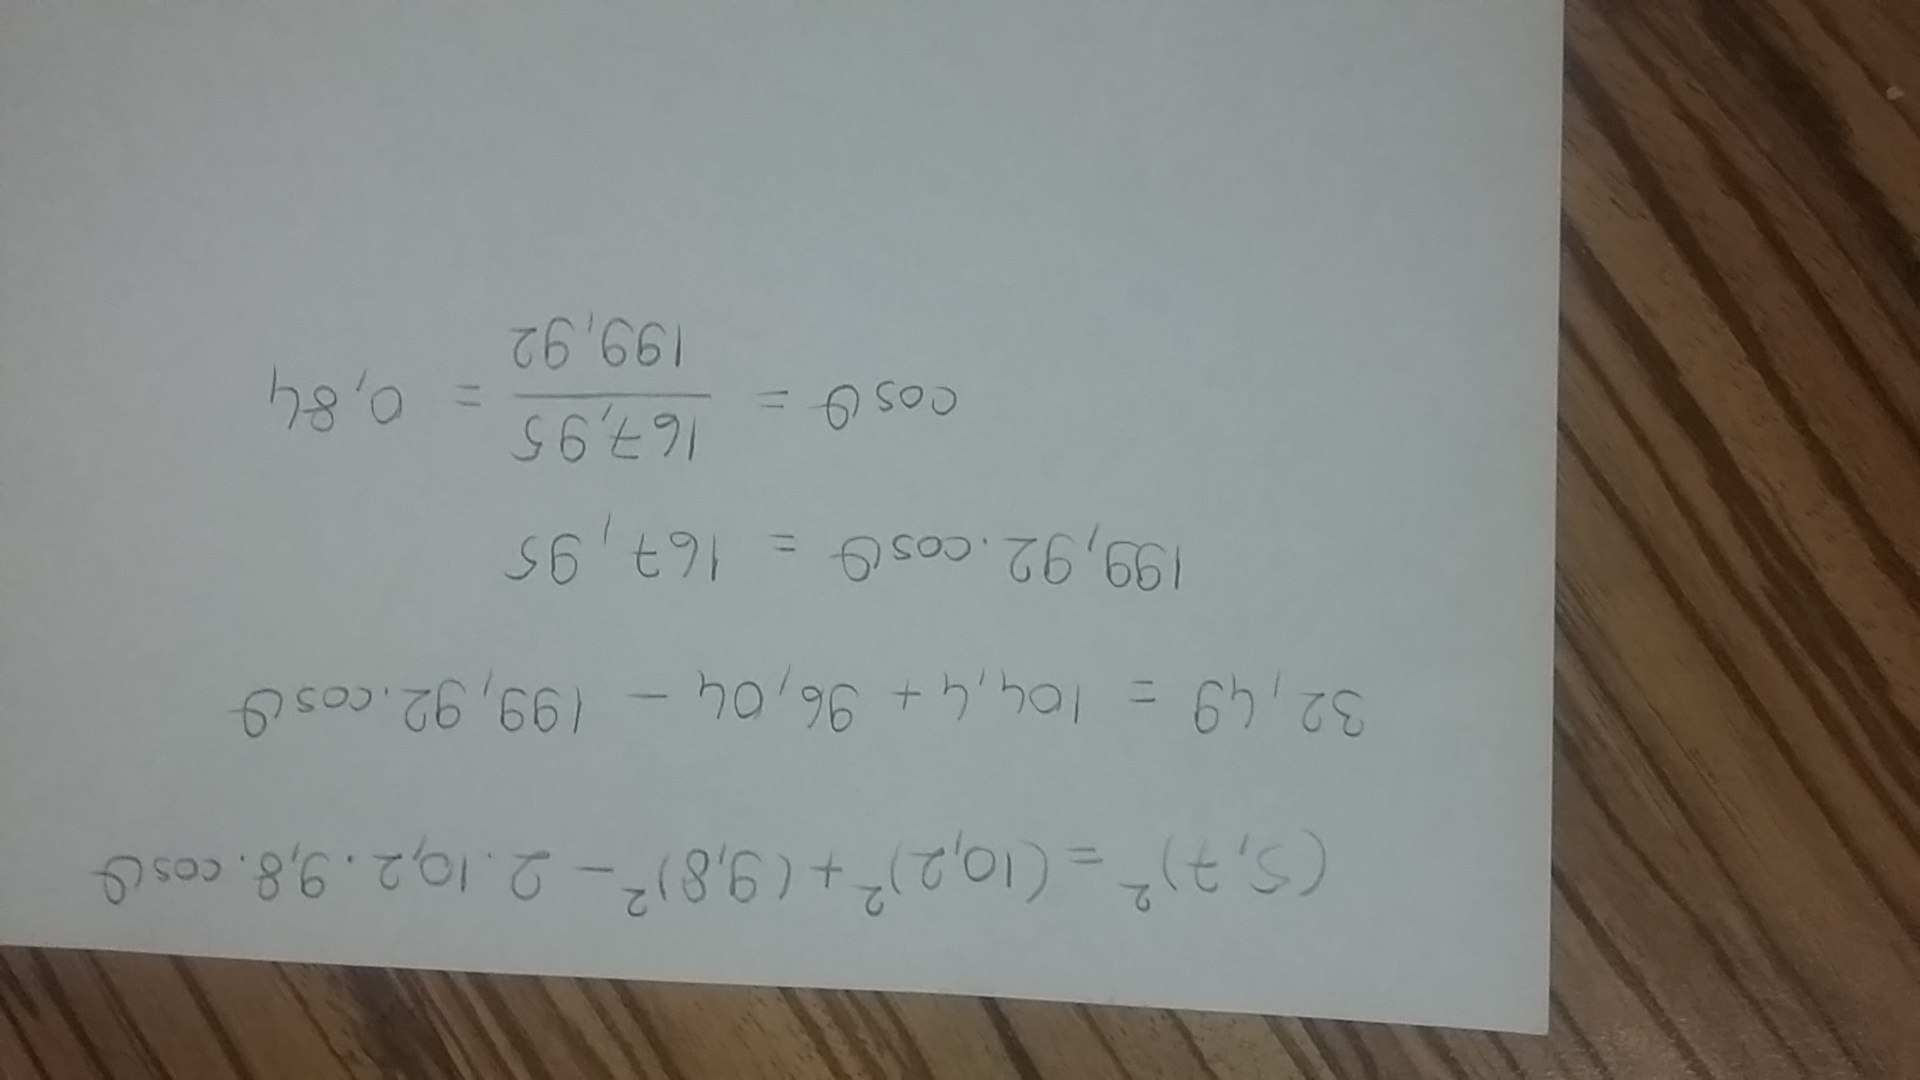 (5,7)² = (10,2)² + (9,8)² - 2 . 10,2 . 9,8 . cosθ
32,49 = 104,4 + 96,04 - 199,92 . cosθ
199,92 . cosθ = 167,95
cosθ = 167,95 / 199,92 = 0,84